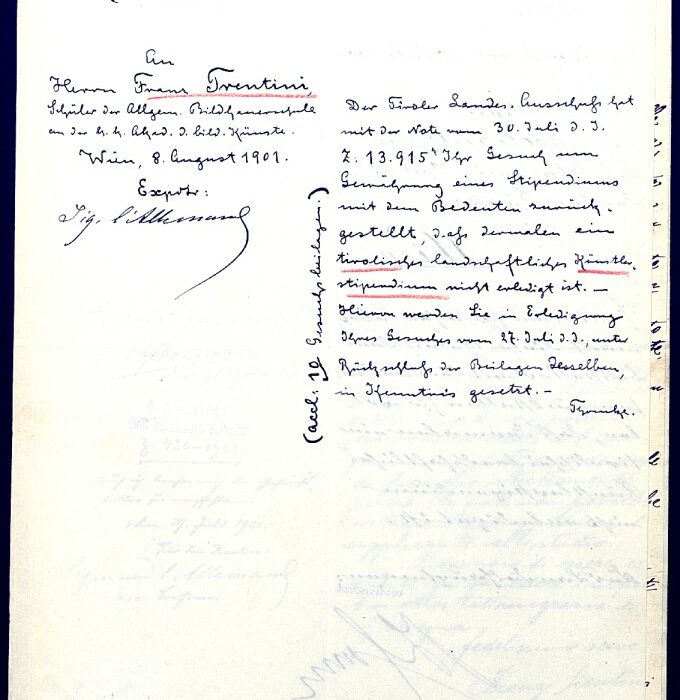 An
Herrn Franz Trentini,
Schüler der Allgem. Bildhauerschule
an der k. k. Akad. d. bild. Künste.
Wien, 8. August 1901.
Expedr:
Sig. l'Allemand
(accl: 10 Gesuchsbeilagen.)
Der Tiroler Landes-Ausschuß hat
mit der Note vom 30. Juli d. J.
Z. 13.915 Ihr Gesuch um
Gewährung eines Stipendiums
mit dem Bedeuten zurück-
gestellt, daß dermalen ein
tirolisches landschaftliches Künstler-
stipendium nicht erledigt ist. –
Hievon werden Sie in Erledigung
Ihres Gesuches vom 27. Juli d. J., unter
Rückschluß der Beilagen desselben,
in Kenntnis gesetzt. –